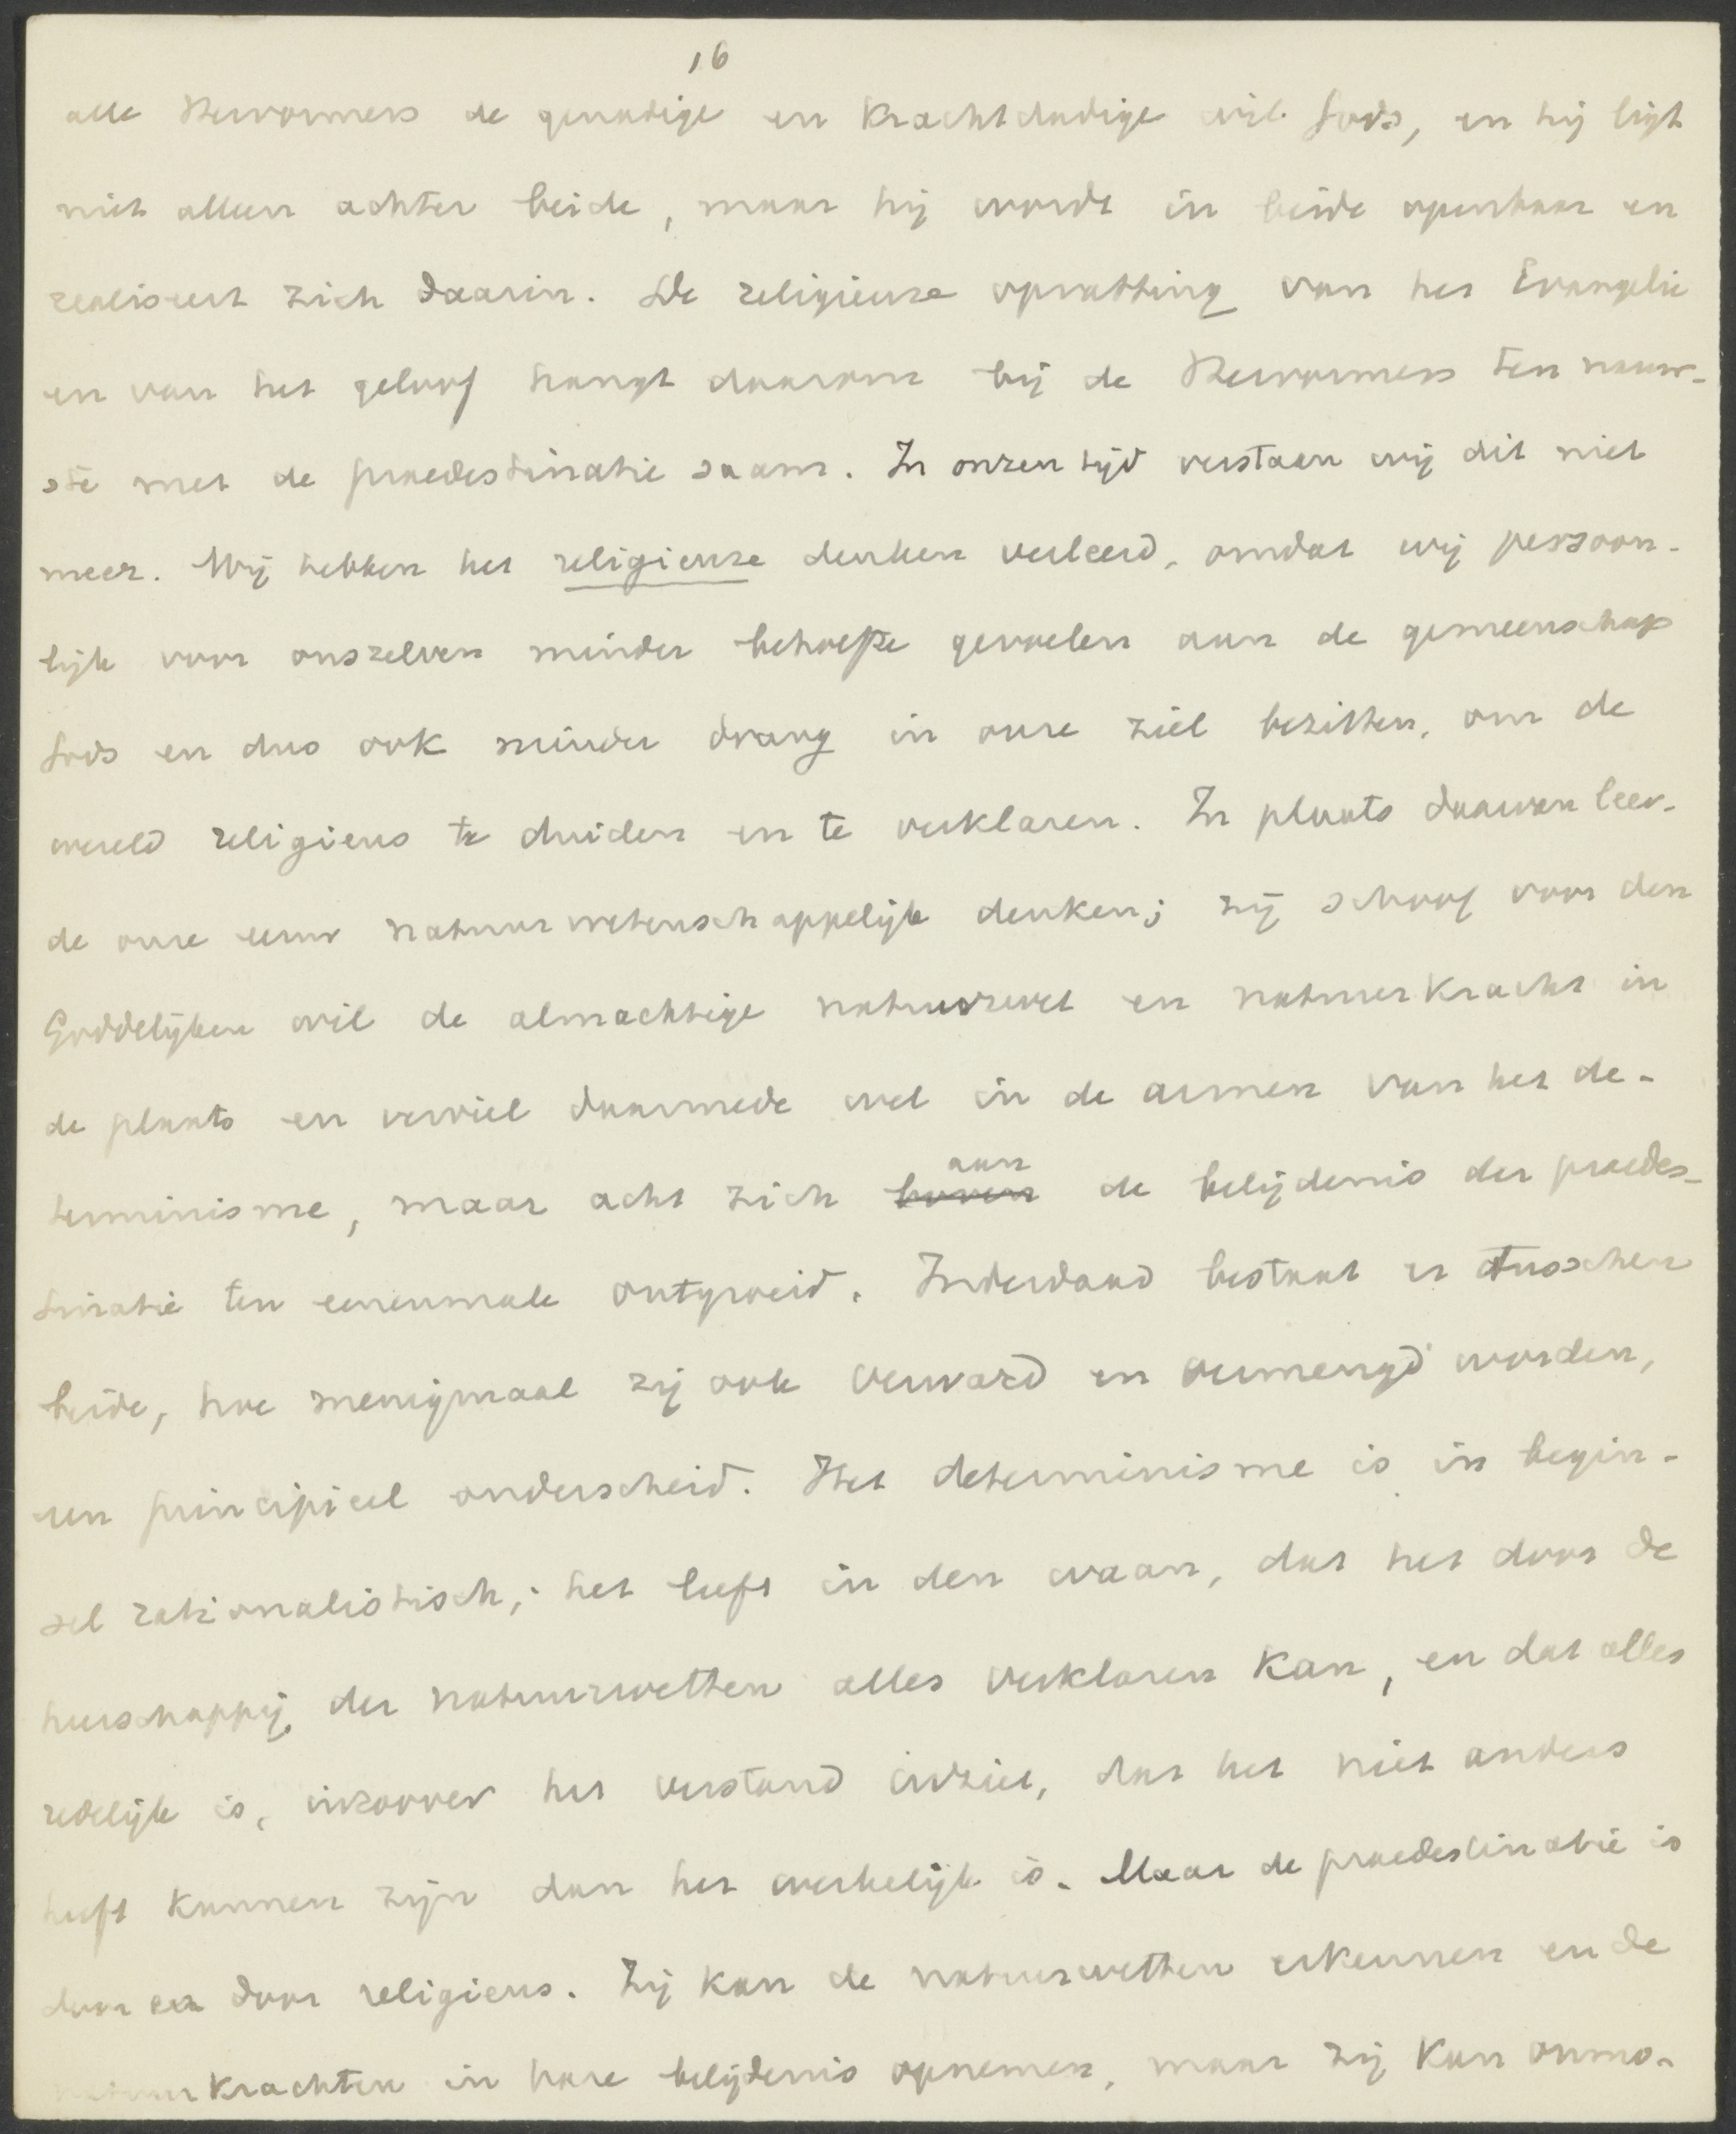 16
alle Hervormers de genadige en krachtdadige wil Gods, en hij ligt
niet alleen achter beide, maar hij wordt in beide openbaar en
realiseert zich daarin. De religieuze opvatting van het Evangelie
en van het geloof hangt daarom bij de Hervormers ten nauw-
ste met de praedestinatie saam. In onzen tijd verstaan wij dit niet
meer. Wij hebben het religieuze denken verleerd, omdat wij persoon-
lijk voor onszelven minder behoefte gevoelen aan de gemeenschap
Gods en dus ook minder drang in onze ziel bezitten, om de
wereld religieus te duiden en te verklaren. In plaats daarvan leer-
de onze eeuw natuurwetenschappelijk denken; zij schoof voor den
Goddelijken wil de almachtige natuurwet en natuurkracht in
de plaats en verviel daarmede wel in de armen van het de-
terminisme, maar acht zich boven aan de belijdenis der praedes-
tinatie ten eenenmale ontgroeid. Inderdaad bestaat er tusschen
beide, hoe menigmaal zij ook verward en vermengd worden,
een principieel onderscheid. Het determinisme is in begin-
sel rationalistisch; het leeft in den waan, dat het door de
heerschappij der natuurwetten alles verklaren kan, en dat alles
redelijk is, inzoover het verstand inziet, dat het niet anders
heeft kunnen zijn dan het werkelijk is. Maar de praedestinatie is
door en door religieus. Zij kan de natuurwetten erkennen en de
natuurkrachten in hare belijdenis opnemen, maar zij kan onmo-